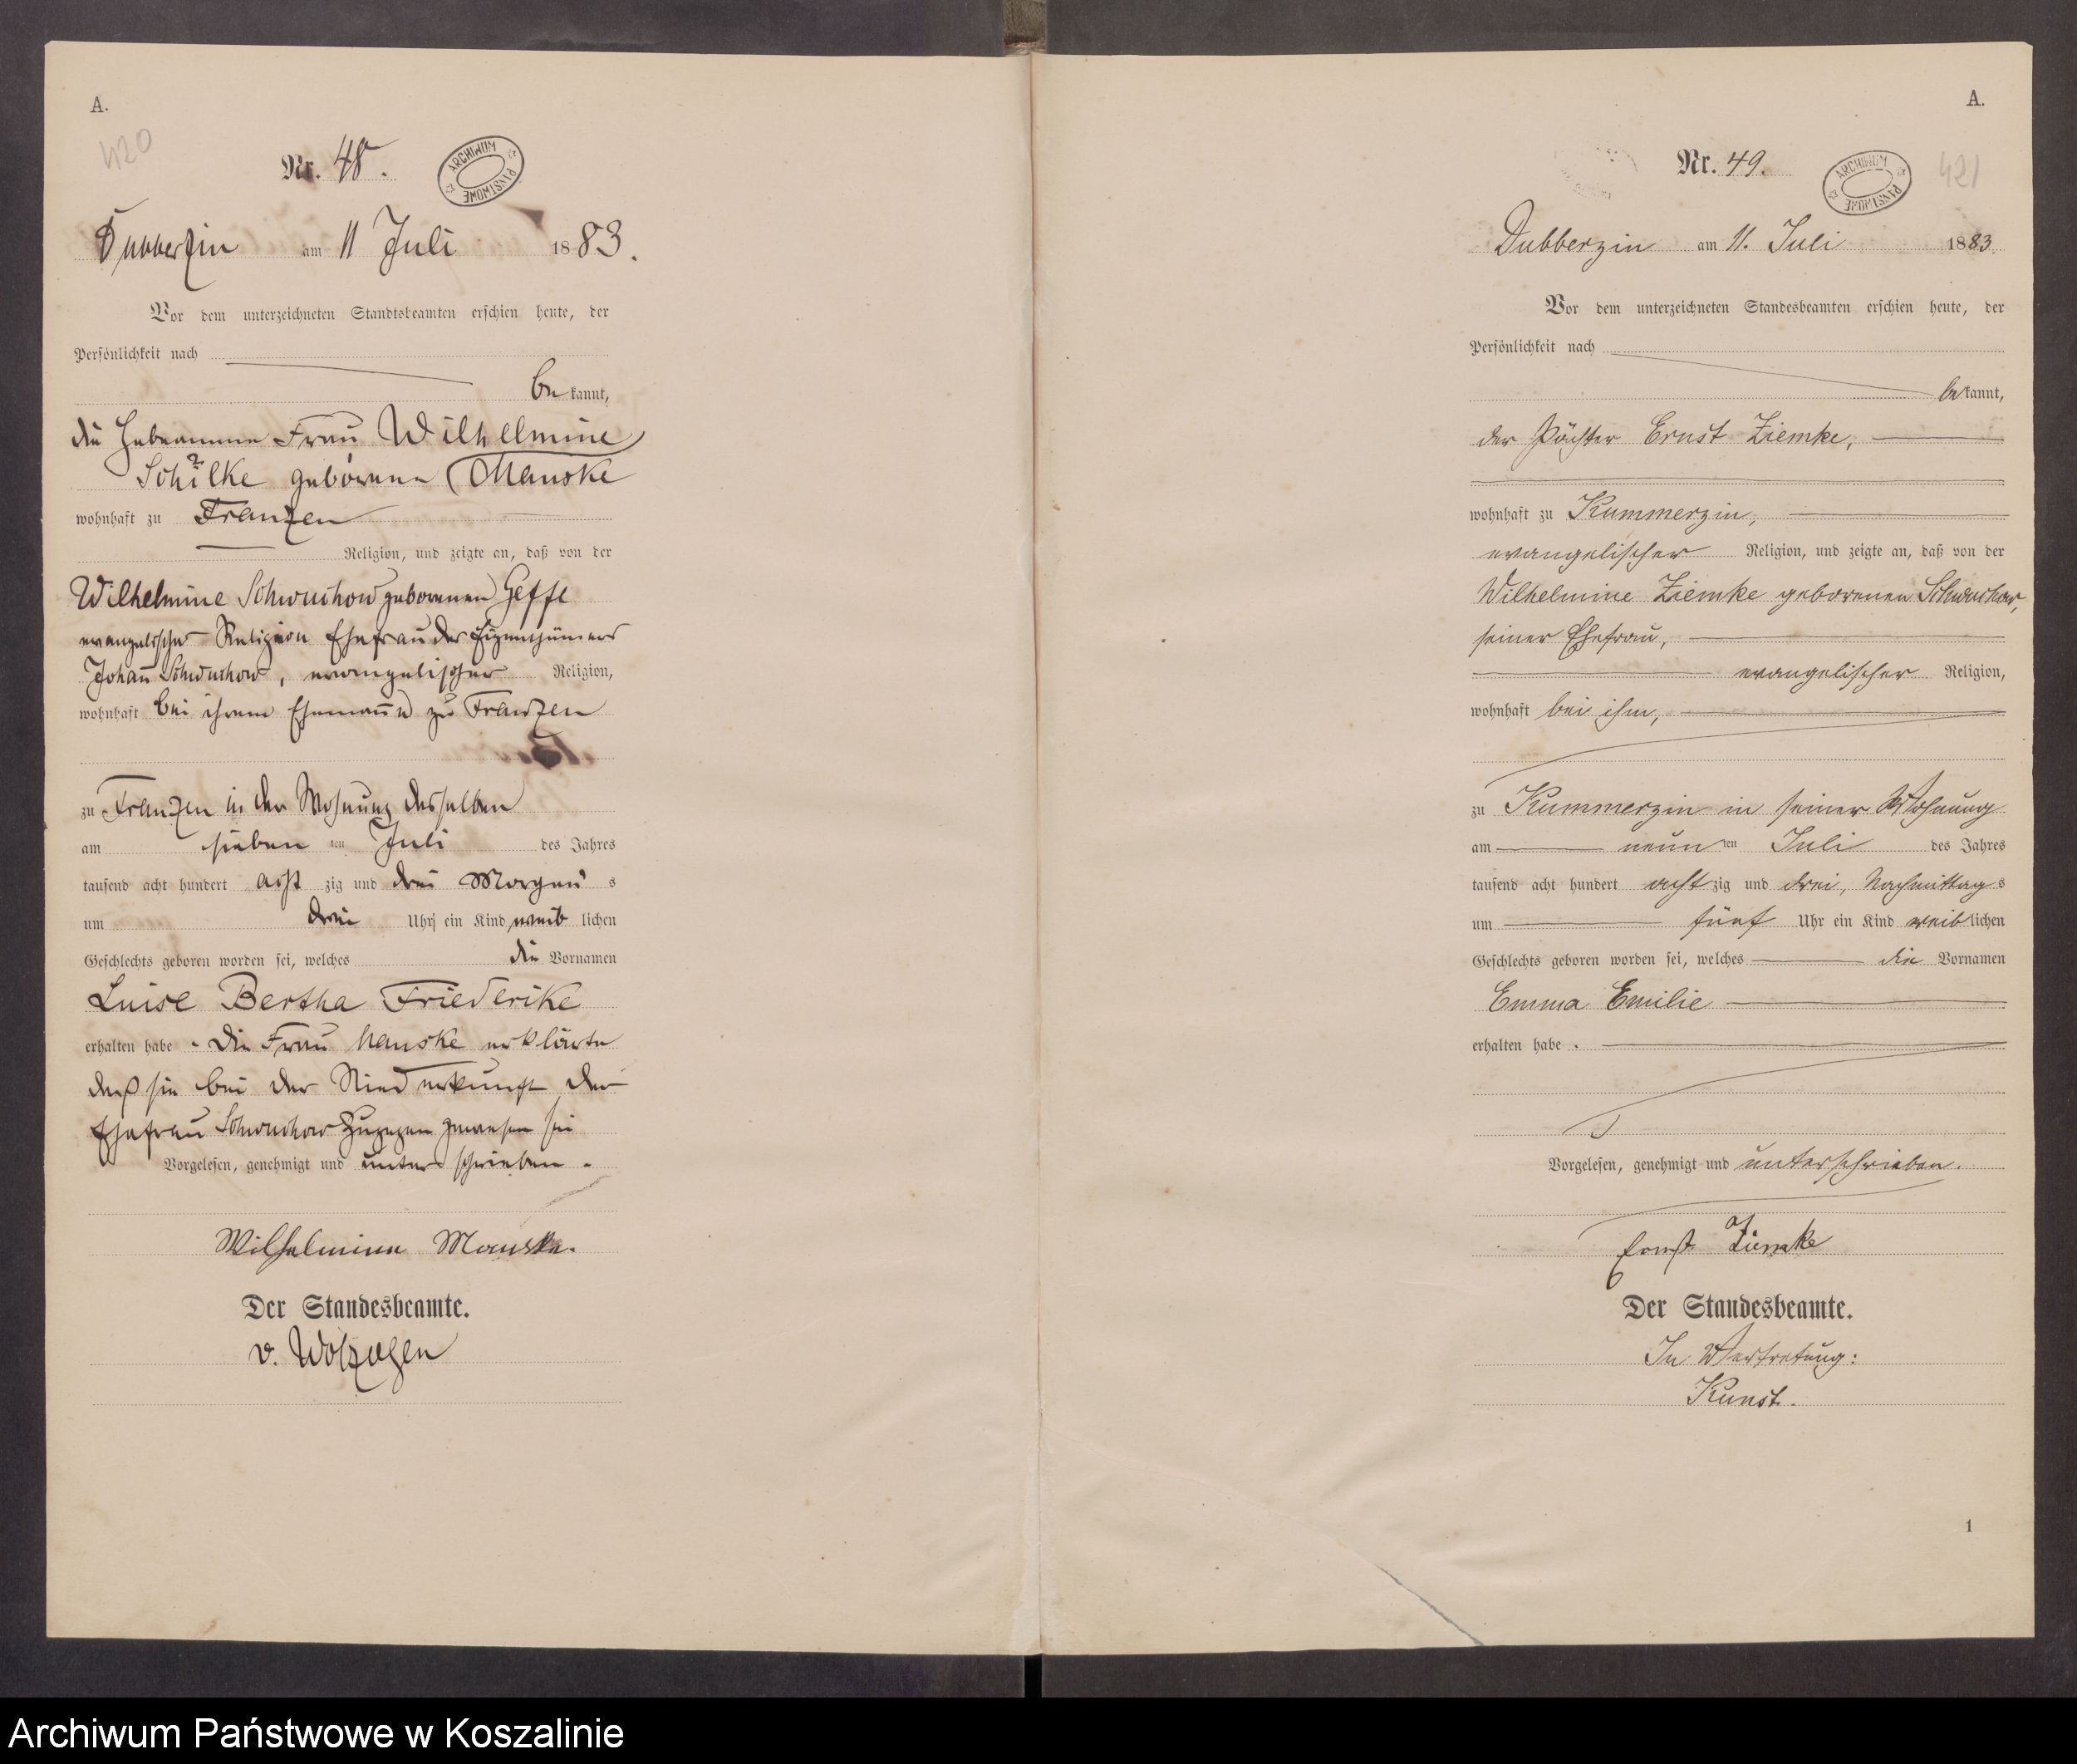 A.
420
Nr. 48.
ARCHIWUM PAŃSTWOWE
Dubberzin am 11 Juli 1883.
Vor dem unterzeichneten Standtsbeamten erschien heute, der
Persönlichkeit nach
be kannt,
die Hebeamme Frau Wilhelmine
Schilke geborene Manske
wohnhaft zu Franzen
Religion, und zeigte an, daß von der
Wilhelmine Schwuchow geborenen Geffe
evangelischer Religion Ehefrau des Eigenthümers
Johann Schwuchow, evangelischer Religion,
wohnhaft bei ihrem Ehemanne zu Franzen
zu Franzen in der Wohnung desselben
am sieben ten Juli des Jahres
tausend acht hundert acht zig und drei Morgens
um drei Uhr ein Kind weib lichen
Geschlechts geboren worden sei, welches die Vornamen
Luise Bertha Friederike
erhalten habe. Die Frau Manske erklärte
daß sie bei der Niederkunft der
Ehefrau Schwuchow zugegen gewesen sei
Vorgelesen, genehmigt und unterschrieben.
Wilhelmine Manske.
Der Standesbeamte.
v. Wolzogen
A.
421
Nr. 49.
ARCHIWUM PAŃSTWOWE
Dubberzin am 11. Juli 1883.
Vor dem unterzeichneten Standesbeamten erschien heute, der
Persönlichkeit nach
be kannt,
der Pächter Ernst Ziemke,
wohnhaft zu Kummerzin,
evangelischer Religion, und zeigte an, daß von der
Wilhelmine Ziemke geborenen Schwuchow,
seiner Ehefrau,
evangelischer Religion,
wohnhaft bei ihm,
zu Kummerzin in seiner Wohnung
am neun ten Juli des Jahres
tausend acht hundert acht zig und drei, Nachmittags
um fünf Uhr ein Kind weib lichen
Geschlechts geboren worden sei, welches die Vornamen
Emma Emilie
erhalten habe.
Vorgelesen, genehmigt und unterschrieben.
Ernst Ziemke
Der Standesbeamte.
In Vertretung:
Kunst.
1
Archiwum Państwowe w Koszalinie